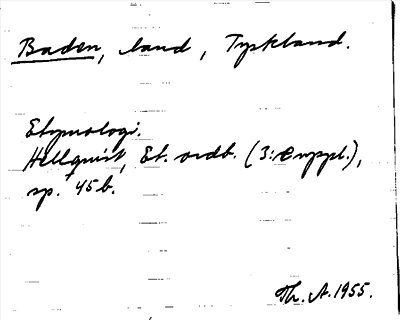 Baden, land, Tyskland.
Etymologi.
Hellquist, Et. ordb. (3:e uppl.),
sp. 45 b.
Th. A. 1955.